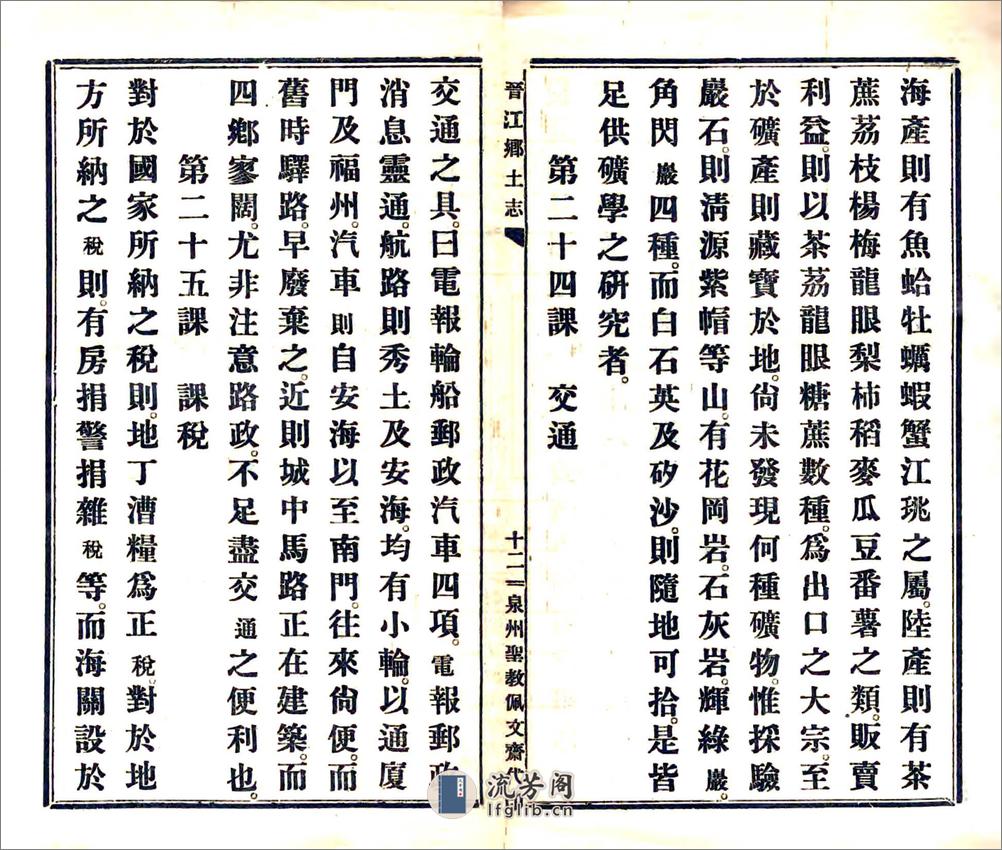 海產則有魚蛤牡蠣蝦蟹江珧之屬。陸產則有茶
蔗荔枝楊梅龍眼梨柿稻麥瓜豆番薯之類。販賣
利益。則以茶荔龍眼糖蔗數種。爲出口之大宗。至
於礦產則藏寶於地。尙未發現何種礦物。惟採驗
嚴石。則淸源紫帽等山。有花岡岩。石灰岩。輝綠巖。
角閃巖四種。而白石英及矽沙。則隨地可拾。是皆
足供礦學之硏究者。
第二十四課　交通
晉江鄉土志
十二
泉州聖教佩文齋代印
交通之具。曰電報輪船郵政汽車四項。電報郵政
消息靈通。航路則秀土及安海。均有小輪。以通廈
門及福州。汽車則自安海以至南門。往來尙便。而
舊時驛路。早廢棄之。近則城中馬路正在建築。而
四鄉寥闊。尤非注意路政。不足盡交通之便利也。
第二十五課　課稅
對於國家所納之稅則。地丁漕糧爲正稅。對於地
方所納之稅則。有房捐警捐雜稅等。而海關設於
流芳阁
lfglib.cn